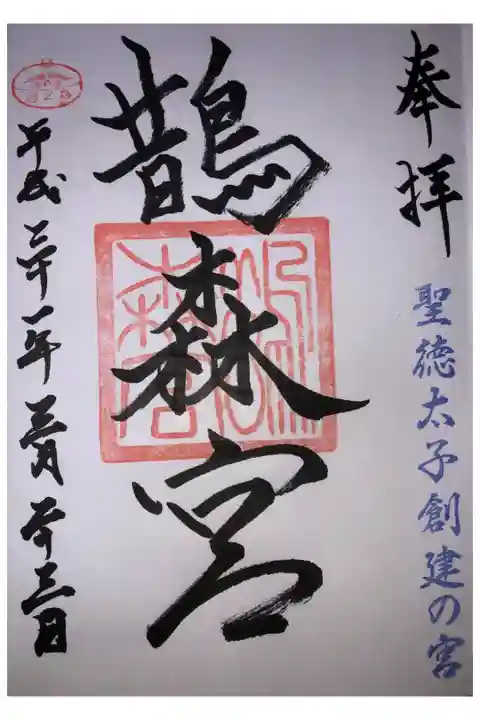 奉拝
聖徳太子創建の宮
鵲森宮
平成三十一年三月廿三日